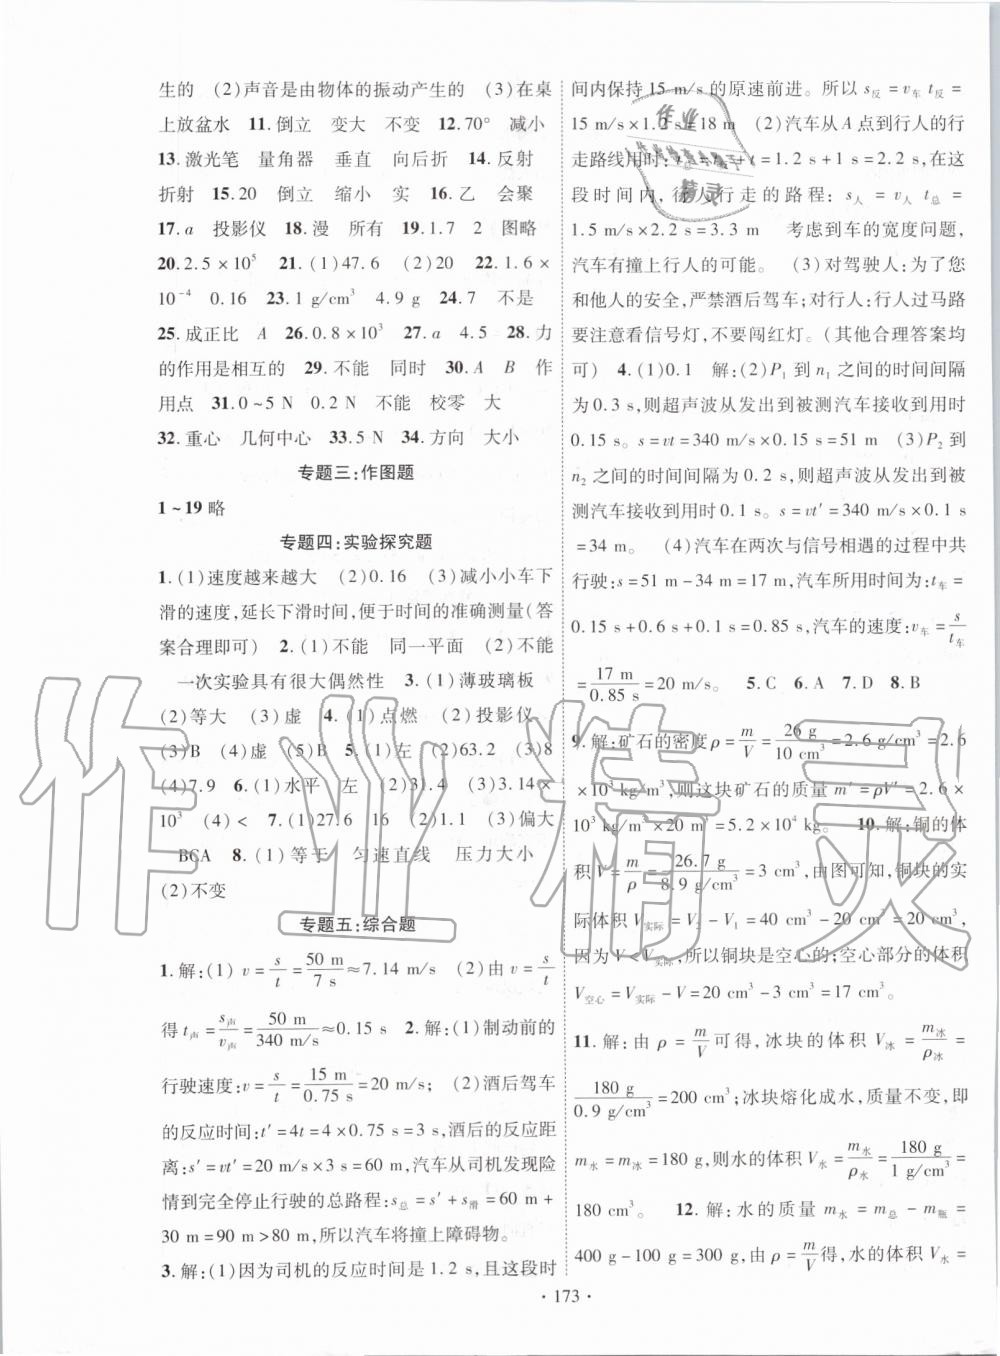 生的 (2)声音是由物体的振动产生的 (3)在桌
上放盆水 11.倒立 变大 不变 12.70° 减小
13.激光笔 量角器 垂直 向后折 14.反射
折射 15.20 倒立 缩小 实 16.乙 会聚
17.a 投影仪 18.漫 所有 19.1.7 2 图略
20.2.5×10⁵ 21.(1)47.6 (2)20 22.1.6×
10⁻⁴ 0.16 23.1 g/cm³ 4.9 g 24.7 不是
25.成正比 A 26.0.8×10³ 27.a 4.5 28.力
的作用是相互的 29.不能 同时 30.A B 作
用点 31.0~5 N 0.2 N 不能 校零 大
32.重心 几何中心 33.5 N 34.方向 大小
专题三:作图题
1~19略
专题四:实验探究题
1.(1)速度越来越大 (2)0.16 (3)减小小车下
滑的速度,延长下滑时间,便于时间的准确测量(答
案合理即可) 2.(1)不能 同一平面 (2)不能
一次实验具有很大偶然性 3.(1)薄玻璃板
(2)等大 (3)虚 4.(1)点燃 (2)投影仪
(3)B (4)虚 (5)B 5.(1)左 (2)63.2 (3)8
(4)7.9 6.(1)水平 左 (2)31.4 (3)3.14×
10³ (4)< 7.(1)27.6 16 (2)1.1 (3)偏大
BCA 8.(1)等于 匀速直线 压力大小
(2)不变
专题五:综合题
1.解:(1) v=s/t=50 m/7 s≈7.14 m/s (2)由 v=s/t
得 t声=s声/v声=50 m/340 m/s≈0.15 s 2.解:(1)制动前的
行驶速度:v=s/t=15 m/0.75 s=20 m/s; (2)酒后驾车
的反应时间:t′=4t=4×0.75 s=3 s,酒后的反应距
离:s′=vt′=20 m/s×3 s=60 m,汽车从司机发现险
情到完全停止行驶的总路程:s总=s′+s滑=60 m+
30 m=90 m>80 m,所以汽车将撞上障碍物。
3.解:(1)因为司机的反应时间是1.2 s,且这段时
间内保持15 m/s的原速前进。所以 s反=v车 t反=
15 m/s×1.2 s=18 m (2)汽车从A点到行人的行
走路线用时:t总=t反+t=1.2 s+1 s=2.2 s,在这
段时间内,行人行走的路程: s人=v人 t总=
1.5 m/s×2.2 s=3.3 m 考虑到车的宽度问题,
汽车有撞上行人的可能。 (3)对驾驶人:为了您
和他人的安全,严禁酒后驾车;对行人:行人过马路
要注意看信号灯,不要闯红灯。(其他合理答案均
可) 4.(1)0.1 解:(2)P₁到n₁之间的时间间隔
为0.3 s,则超声波从发出到被测汽车接收到用时
0.15 s。s=vt=340 m/s×0.15 s=51 m (3)P₂到
n₂之间的时间间隔为0.2 s,则超声波从发出到被
测汽车接收到用时0.1 s。s=vt′=340 m/s×0.1 s
=34 m。 (4)汽车在两次与信号相遇的过程中共
行驶:s=51 m-34 m=17 m,汽车所用时间为:t车=
0.15 s+0.6 s+0.1 s=0.85 s,汽车的速度:v车=s/t车
=17 m/0.85 s=20 m/s。 5.C 6.A 7.D 8.B
9.解:矿石的密度ρ=m/V=26 g/10 cm³=2.6 g/cm³=2.6
×10³ kg/m³,则这块矿石的质量 m′=ρV′=2.6×
10³ kg/m³×20 m³=5.2×10⁴ kg。 10.解:铜的体
积V=m/ρ=26.7 g/8.9 g/cm³=3 cm³,由图可知,铜块的实
际体积V实际=V₂-V₁=40 cm³-20 cm³=20 cm³,
因为V<V实际,所以铜块是空心的;空心部分的体积
V空心=V实际-V=20 cm³-3 cm³=17 cm³。
11.解:由 ρ=m/V可得,冰块的体积 V冰=m冰/ρ冰=
180 g/0.9 g/cm³=200 cm³;冰块熔化成水,质量不变,即
m水=m冰=180 g,则水的体积V水=m水/ρ水=180 g/1 g/cm³=
180 cm³。 12.解:水的质量 m水=m总-m瓶=
400 g-100 g=300 g,由ρ=m/V得,水的体积V水=
·173·
作业精灵
作业
精灵